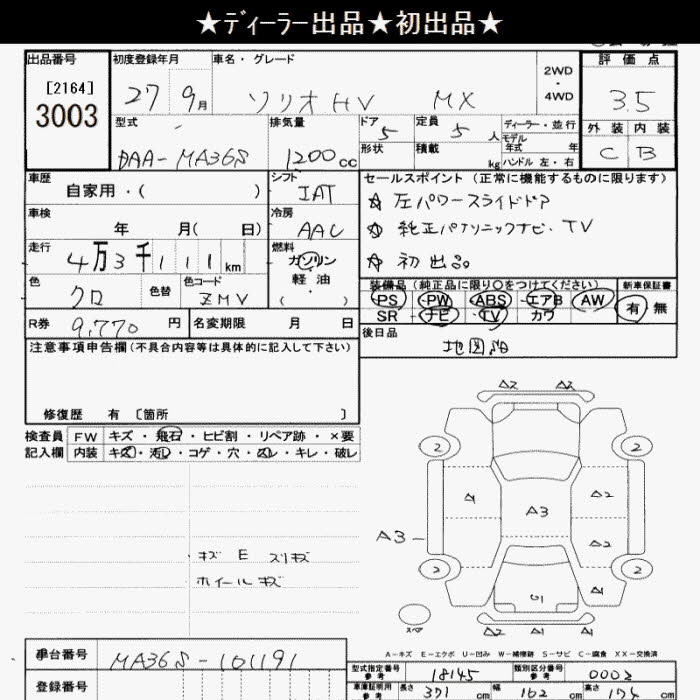 ★ディーラー出品★初出品★
出品番号 初度登録年月 車名・グレード 2WD・4WD 評価点
[2164]
3003
27 9月 ソリオHV MX 3.5
型式 排気量 ドア 定員 ディーラー・並行 外装 内装
5 5人 モデル年式 年
DAA-MA36S 1200cc 形状 積載 kg ハンドル 左・右 C B
車歴 シフト セールスポイント(正常に機能するものに限ります)
自家用・( ) IAT ☆ 左パワースライドドア
車検 冷房 ☆ 純正パナソニックナビ、TV
年 月( 日) AAC
走行 燃料 ☆ 初出品
4万3千111km ガソリン
色 色替 色コード 軽油 装備品(純正品に限り○をつけてください) 新車保証書
クロ ZMV ・( ) PS PW ABS エアB AW 有 無
SR ナビ TV カワ
R券 9,770円 名変期限 月 日 後日品
注意事項申告欄(不具合内容等は具体的に記入して下さい) 地図SD
修復歴 有 〔箇所 〕
検査員 FW キズ・飛石・ヒビ割・リペア跡・×要
記入欄 内装 キズ・汚れ・コゲ・穴・スレ・キレ・破レ
A2 A2
2 2
A A2
A3
A3 A2
2 2
G1 A1
スペア A2 A1 A1
キズ E スリキズ
ホイールキズ
A－キズ E－エクボ U－凹み W－補修跡 S－サビ C－腐食 XX－交換済
車台番号 MA36S-101191 型式指定番号 参考 18145 類別区分番号 参考 0002
登録番号 車庫証明用 参考 長さ 371 cm 幅 162 cm 高さ 174 cm